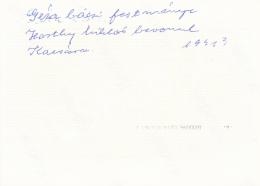 Géza bácsi festménye
Horthy Miklós bevonul
Kassára. 1941?